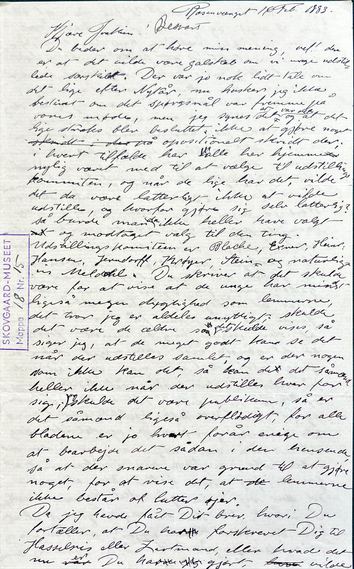 Rosenvænget 14 Feb. 1883.
Kjære Joakim! Besvart
Du beder om at høre min mening, vest du
er at det vilde være galskab om vi unge udstil-
lede særskilt. Der var jo nok lidt tale om
det lige efter Nytår, nu husker jeg ikke
bestemt om det spørgsmål var fremme på
vores møde, men jeg synes det og at det
lige straks blev besluttet ikke at gjøre noget
oppositionelt skridt der;
i hvert tilfælde har alle her hjemme
nylig været med til at vælge til udstillings
komitéen, og når de lige har det, vilde
det da være latterligt ikke at ville
udstille og hvorfor gjøre sig selv latterlig?
så burde man ikke heller have valgt
og modtaget valg til den ting.
Udstillingskomiteen er Blache,
Hansen, Jerndorff, Krøyer, Stein og naturligvis
Meldahl. Du skriver at det skulde
være for at vise at de unge har mindst
ligeså megen dygtighed som lemmerne,
det tror jeg er aldeles unyttigt: skulde
det være de ældre som skulde vises, så
siger jeg, at de meget godt kan se det
når der udstilles samlet, og er der nogen
som ikke kan det, så kan det
heller ikke når der udstilles hver for
sig; skulde det være publikum, så er
det såmænd ligeså overflødigt, for alle
bladene er jo hvert forår enige om
at bearbejde det sådan i den henseende
så at der snarere var grund til at gjøre
noget, for at vise det, at lemmerne
ikke består af lutter
Da jeg havde fået Dit brev, hvori Du
fortæller, at Du har forskrevet Dig til
Hasselriis eller Zurtmand, eller hvad det
nu er Du har gjort, vilde
SKOVGAARD-MUSEET
Mappe 18 Nr. 15